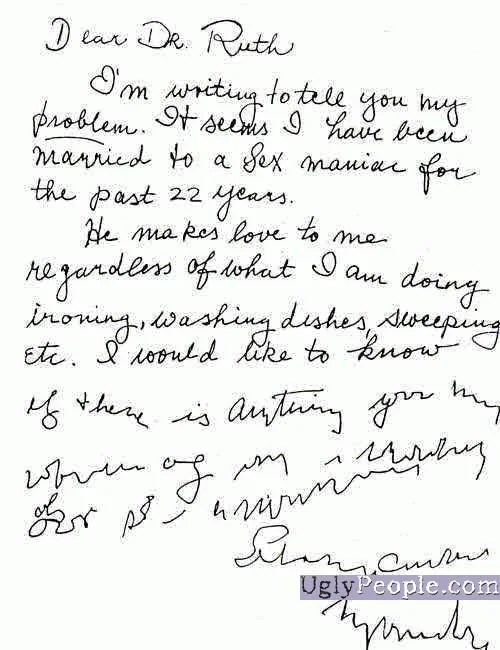 Dear Dr. Ruth
I'm writing to tell you my
problem. It seems I have been
married to a sex maniac for
the past 22 years.
He makes love to me
regardless of what I am doing
ironing, washing dishes, sweeping
etc. I would like to know
if there is anything you
UglyPeople.com